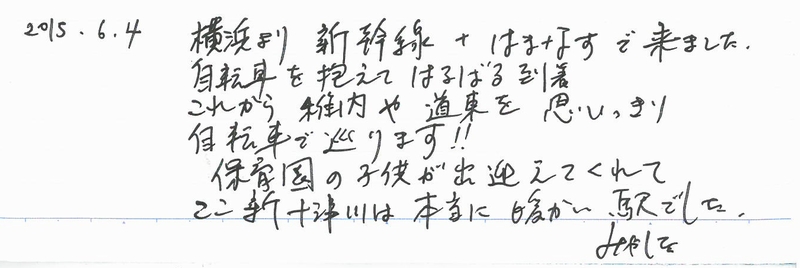 2015.6.4 横浜より 新幹線+はまなすで来ました.
自転車を抱えてはるばる到着
これから 稚内や 道東を 思いっきり
自転車で巡ります!!
保育園の子供が出迎えてくれて
ここ新十津川は本当に暖かい駅でした.